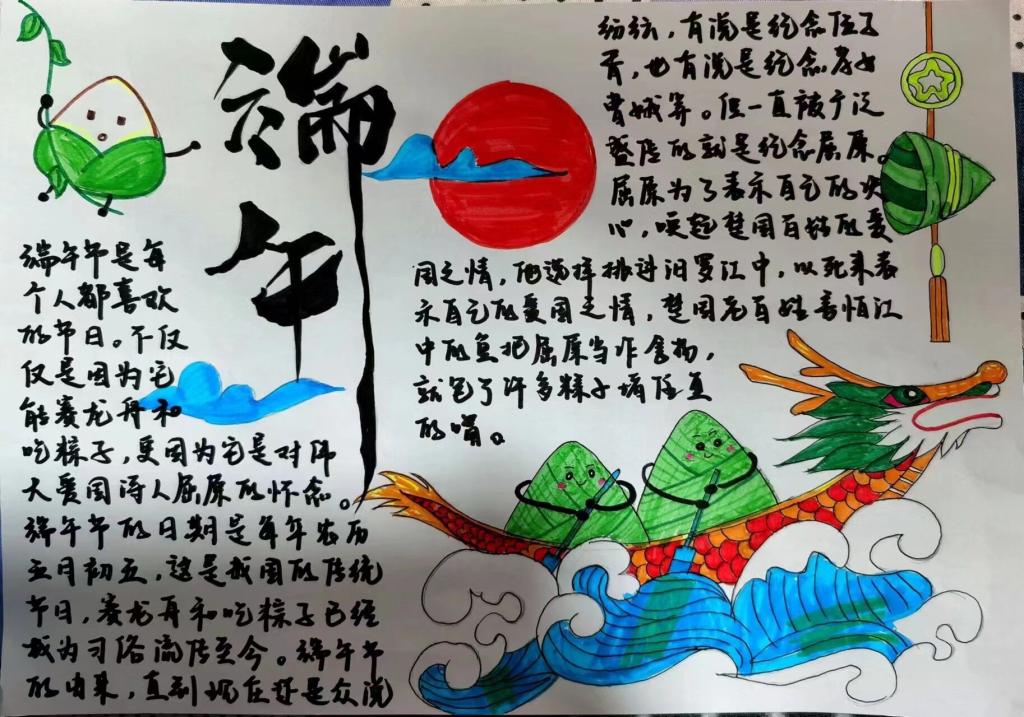 端午
端午节是每
个人都喜欢
的节日。不仅
仅是因为它
能赛龙舟和
吃粽子，更因为它是对伟
大爱国诗人屈原的怀念。
端午节的日期是每年农历
五月初五，这是我国的传统
节日，赛龙舟和吃粽子已经
成为习俗流传至今。端午节
的由来，直到现在还是众说
纷纭，有说是纪念伍子
胥，也有说是纪念孝女
曹娥等。但一直被广泛
盛传的就是纪念屈原。
屈原为了表示自己的决
心，唤起楚国百姓的爱
国之情，他选择投进汨罗江中，以死来表
示自己的爱国之情，楚国老百姓害怕江
中的鱼把屈原当作食物，
就包了许多粽子堵住鱼
的嘴。